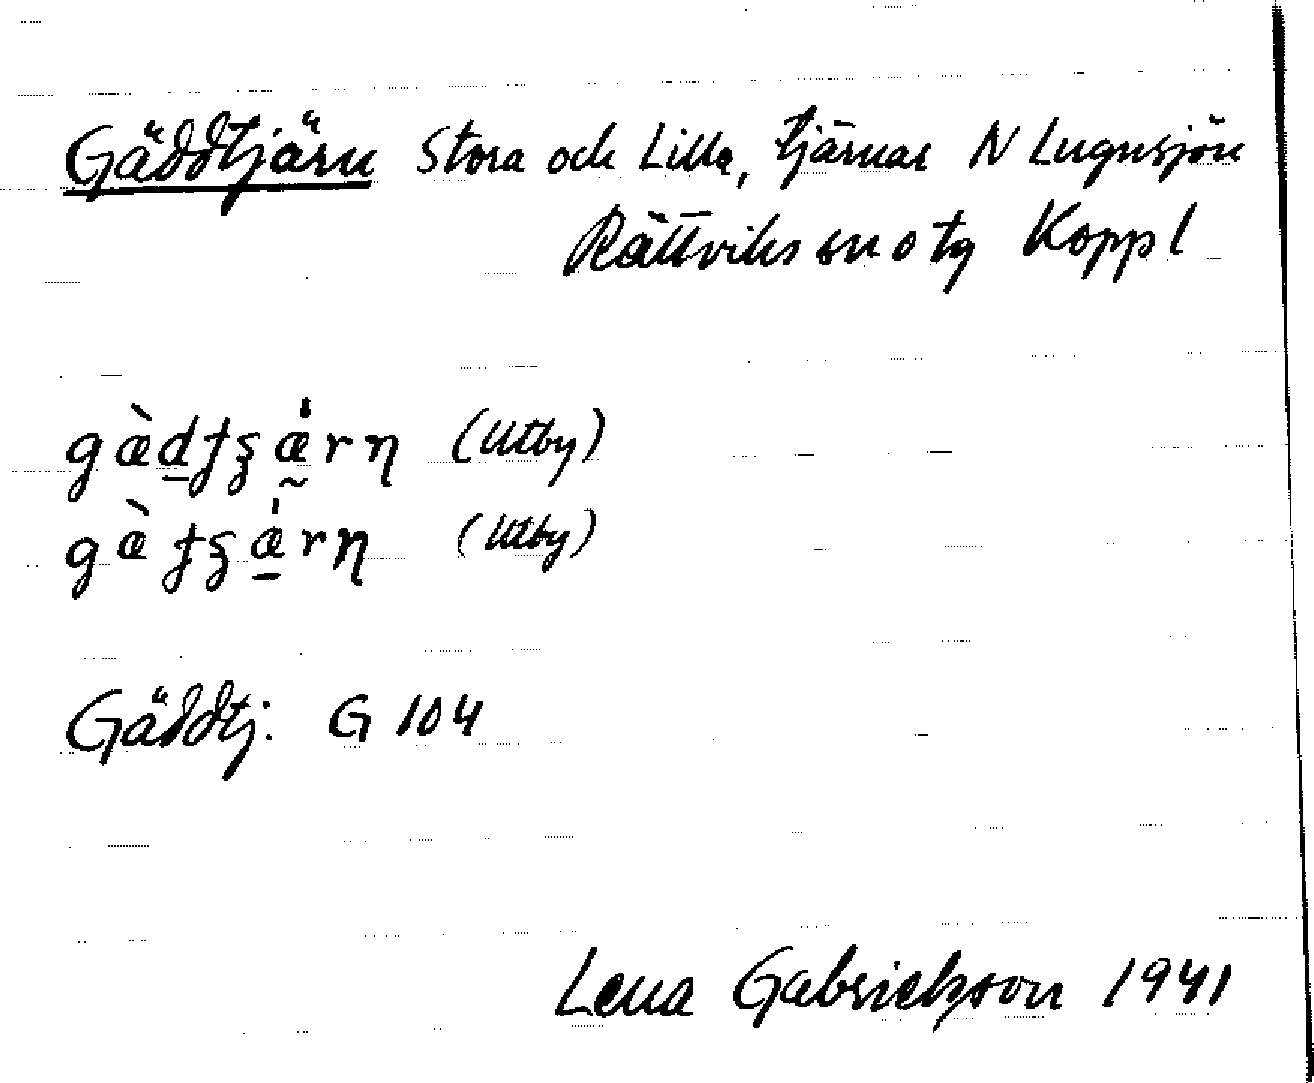 Gäddtjärn Stora och Lilla, tjärnar N Lugnsjön
Rättviks sn o tg Kopp l
(Utby)
(Utby)
Gäddtj. G 104
Lena Gabrielsson 1941